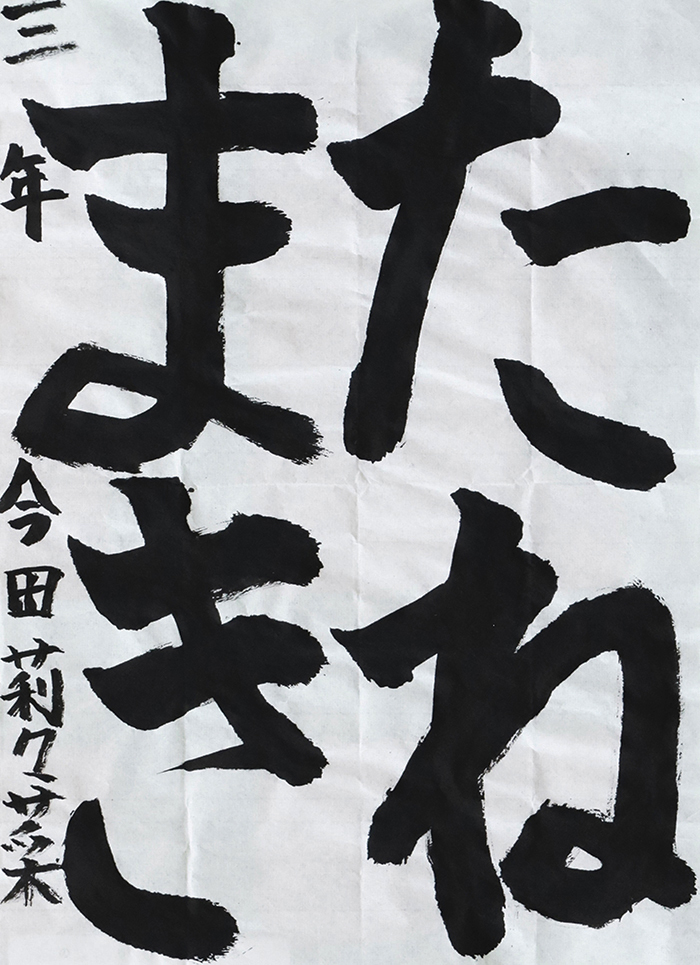 たね
まき
三年 今田莉々菜